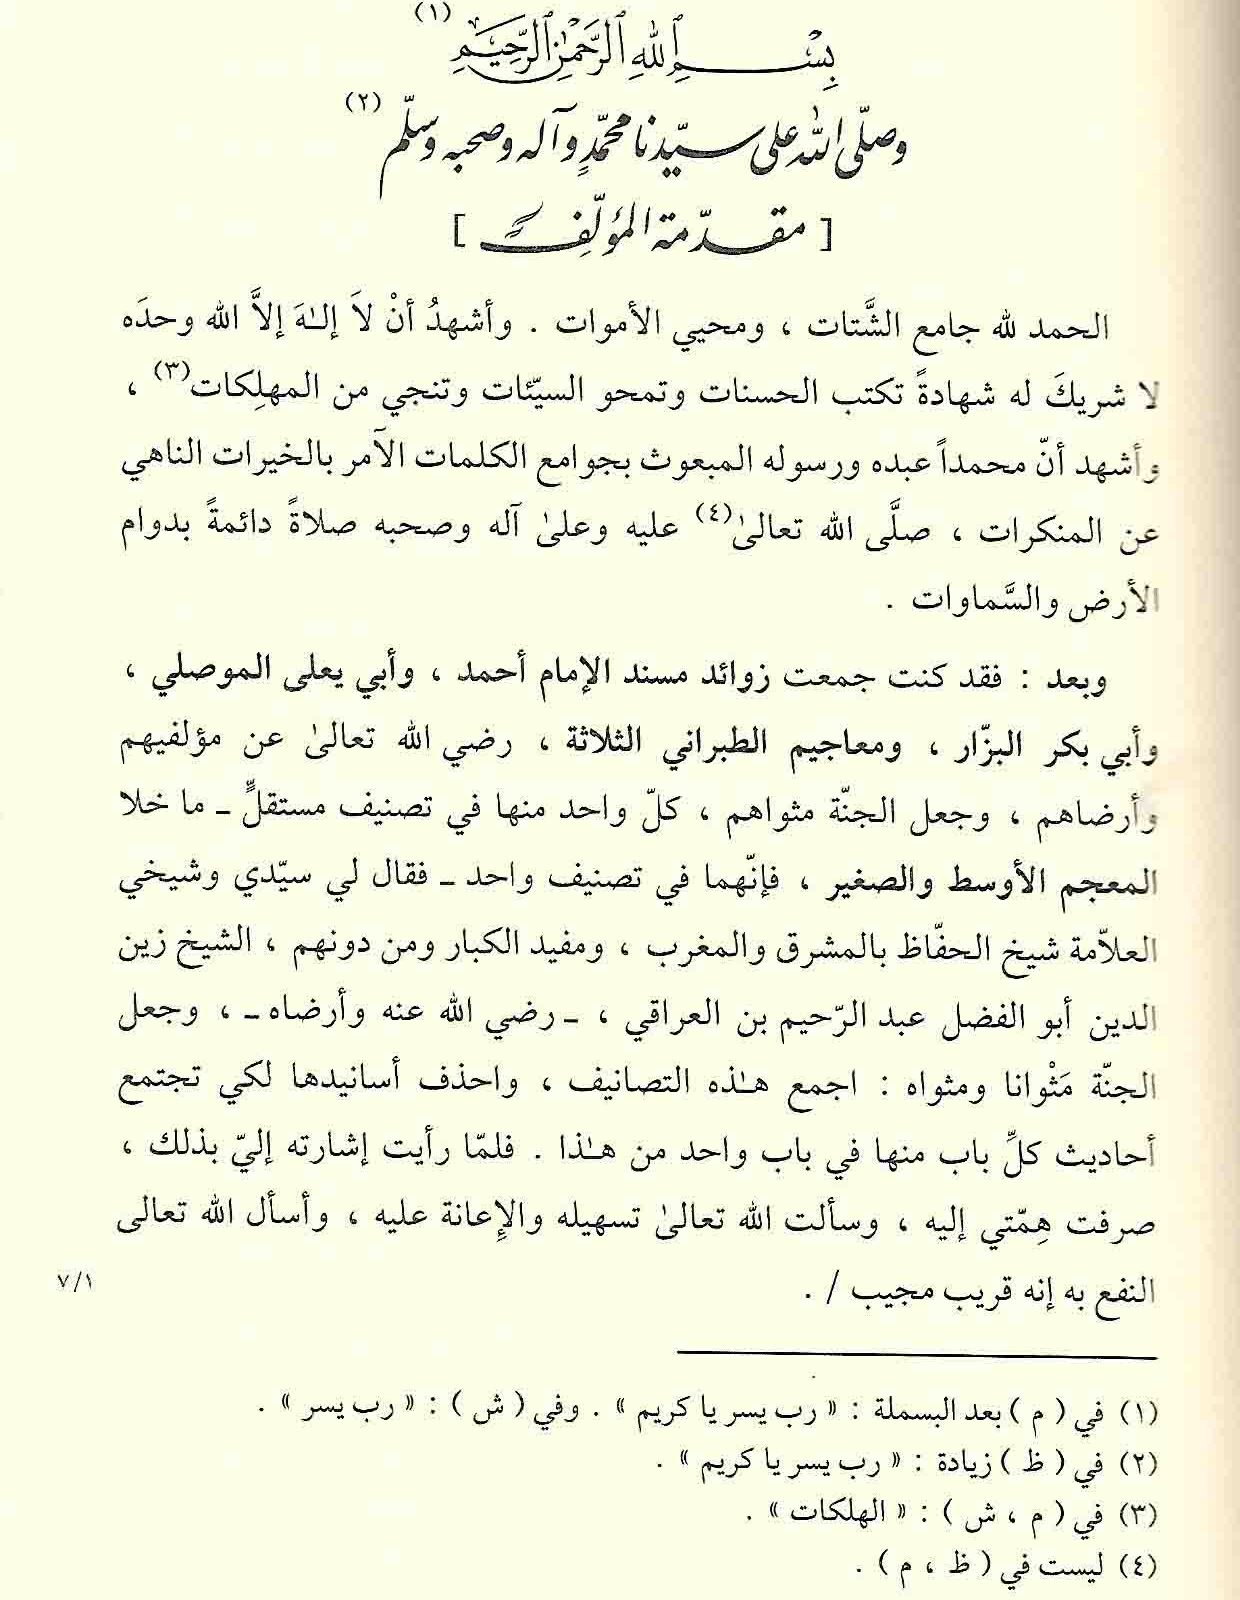 بِسْمِ اللهِ الرَّحْمٰنِ الرَّحِيْمِ (١)
وصلّى الله على سيّدنا محمّدٍ وآله وصحبه وسلّم (٢)
[ مقدّمة المؤلّف ]
الحمد لله جامع الشَّتات ، ومحيي الأموات . وأشهدُ أنْ لاَ إلـٰهَ إلاَّ الله وحدَه
لا شريكَ له شهادةً تكتب الحسنات وتمحو السيّئات وتنجي من المهلِكات(٣) ،
وأشهد أنّ محمداً عبده ورسوله المبعوث بجوامع الكلمات الآمر بالخيرات الناهي
عن المنكرات ، صلَّى الله تعالىٰ(٤) عليه وعلىٰ آله وصحبه صلاةً دائمةً بدوام
الأرض والسَّماوات .
وبعد : فقد كنت جمعت زوائد مسند الإمام أحمد ، وأبي يعلى الموصلي ،
وأبي بكر البزّار ، ومعاجيم الطبراني الثلاثة ، رضي الله تعالىٰ عن مؤلفيهم
وأرضاهم ، وجعل الجنّة مثواهم ، كلّ واحد منها في تصنيف مستقلٍّ ـ ما خلا
المعجم الأوسط والصغير ، فإنّهما في تصنيف واحد ـ فقال لي سيّدي وشيخي
العلاّمة شيخ الحفّاظ بالمشرق والمغرب ، ومفيد الكبار ومن دونهم ، الشيخ زين
الدين أبو الفضل عبد الرّحيم بن العراقي ، ـ رضي الله عنه وأرضاه ـ ، وجعل
الجنّة مَثْوانا ومثواه : اجمع هـٰذه التصانيف ، واحذف أسانيدها لكي تجتمع
أحاديث كلِّ باب منها في باب واحد من هـٰذا . فلمّا رأيت إشارته إليّ بذلك ،
صرفت هِمّتي إليه ، وسألت الله تعالىٰ تسهيله والإِعانة عليه ، وأسأل الله تعالى
النفع به إنه قريب مجيب / .
٧/١
(١) في ( م ) بعد البسملة : « رب يسر يا كريم » . وفي ( ش ) : « رب يسر » .
(٢) في ( ظ ) زيادة : « رب يسر يا كريم » .
(٣) في ( م ، ش ) : « الهلكات » .
(٤) ليست في ( ظ ، م ) .